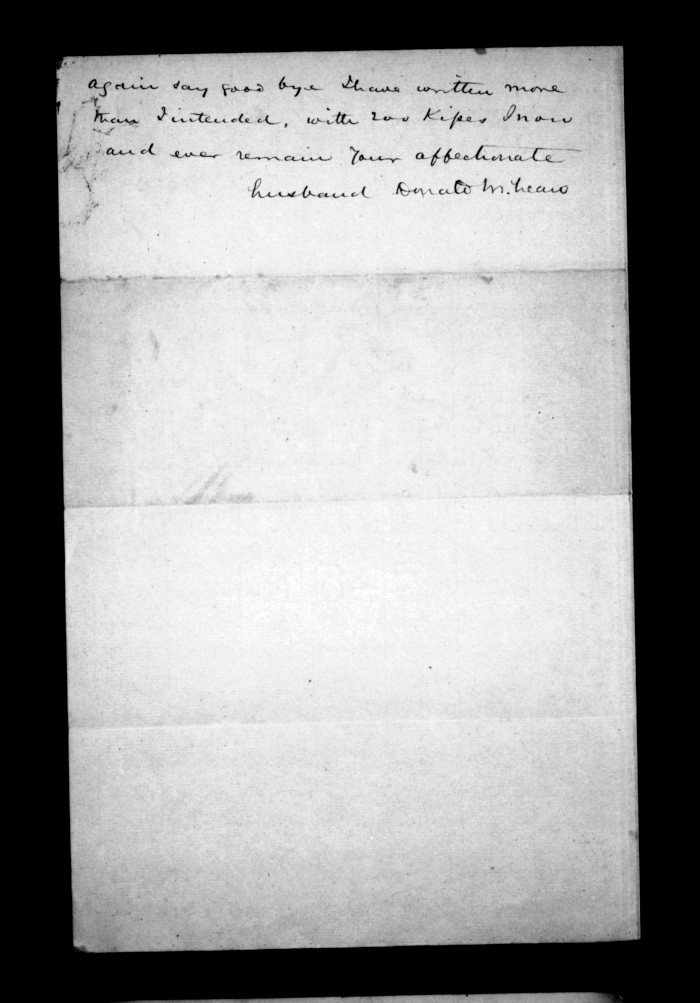 again say good bye I have written more
than I intended, with 200 Kifses I now
and ever remain Your affectionate
husband Donald McLean